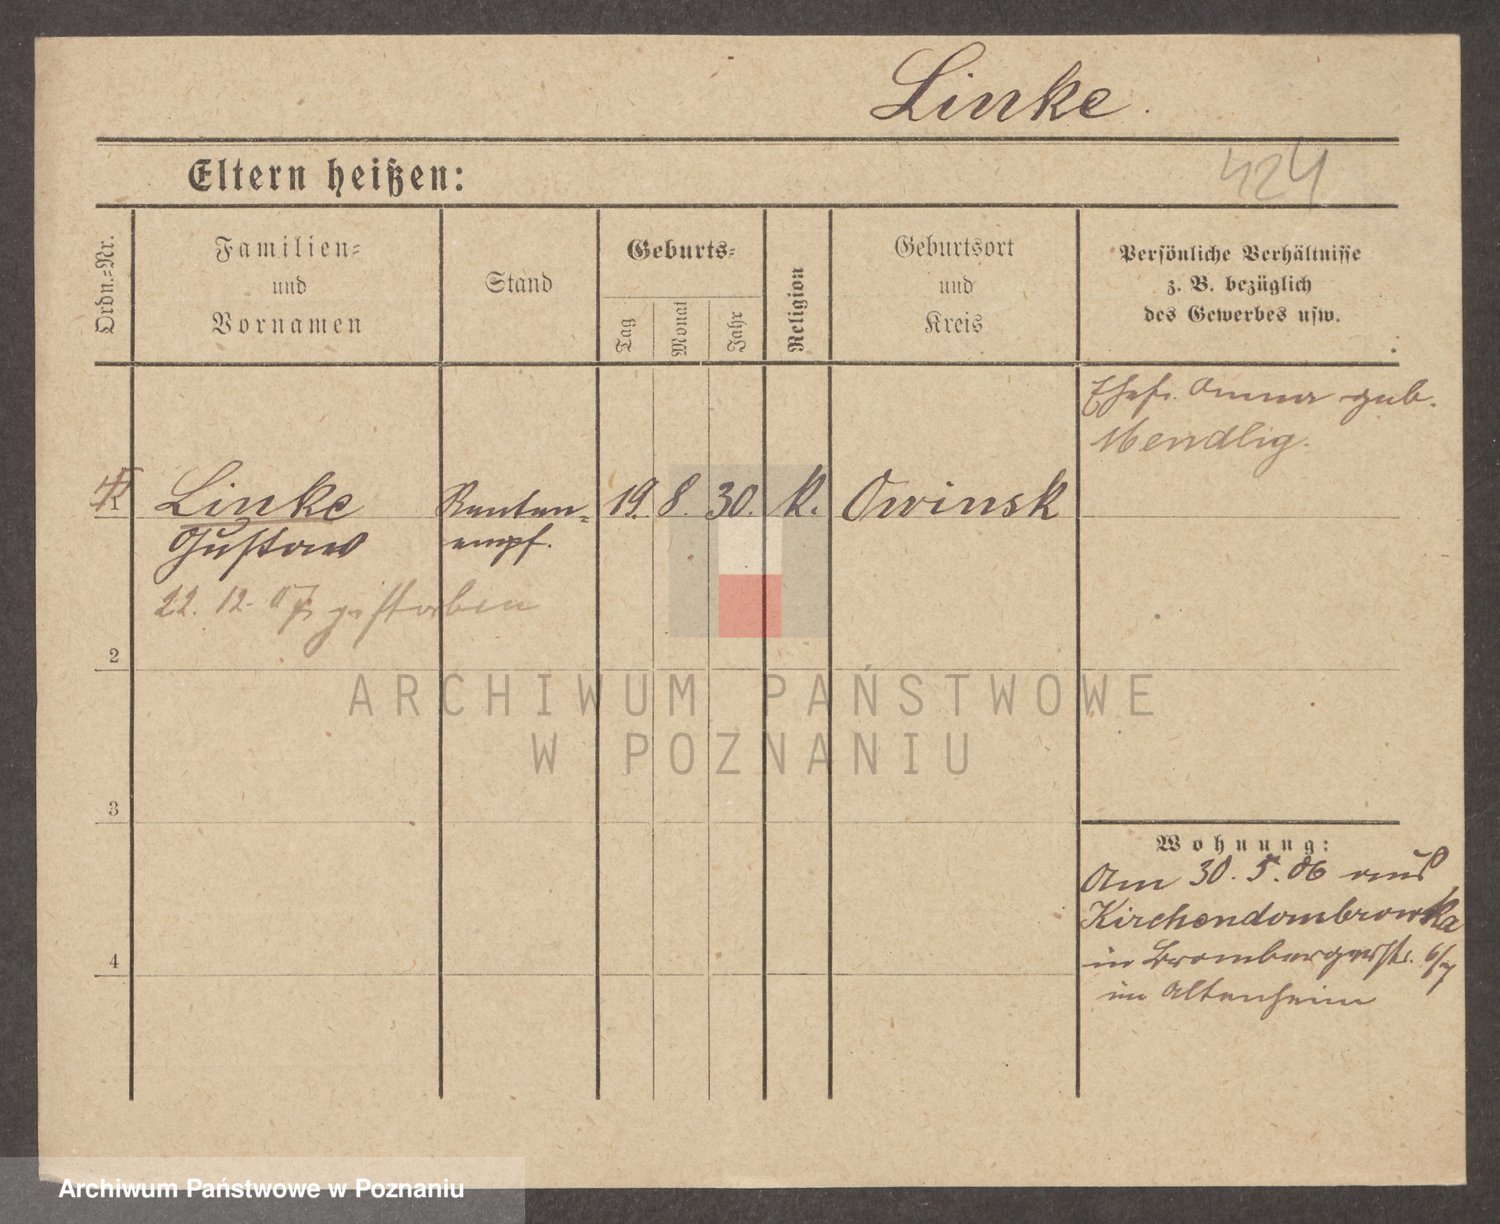 Linke.
Eltern heißen:
424
Ordn.-Nr.
Familien-
und
Vornamen
Stand
Geburts-
Tag
Monat
Jahr
Religion
Geburtsort
und
Kreis
Persönliche Verhältnisse
z. B. bezüglich
des Gewerbes usw.
Ehefr. Anna geb.
Mendlig.
Linke
Gustav
Renten-
empf.
19. 8. 30. k. Owinsk
22. 12. 07 gestorben
2
3
4
Wohnung:
Am 30. 5. 06 aus
Kirchendombrowka
in Brombergerstr. 6/7
im Altenheim
ARCHIWUM PAŃSTWOWE
W POZNANIU
Archiwum Państwowe w Poznaniu